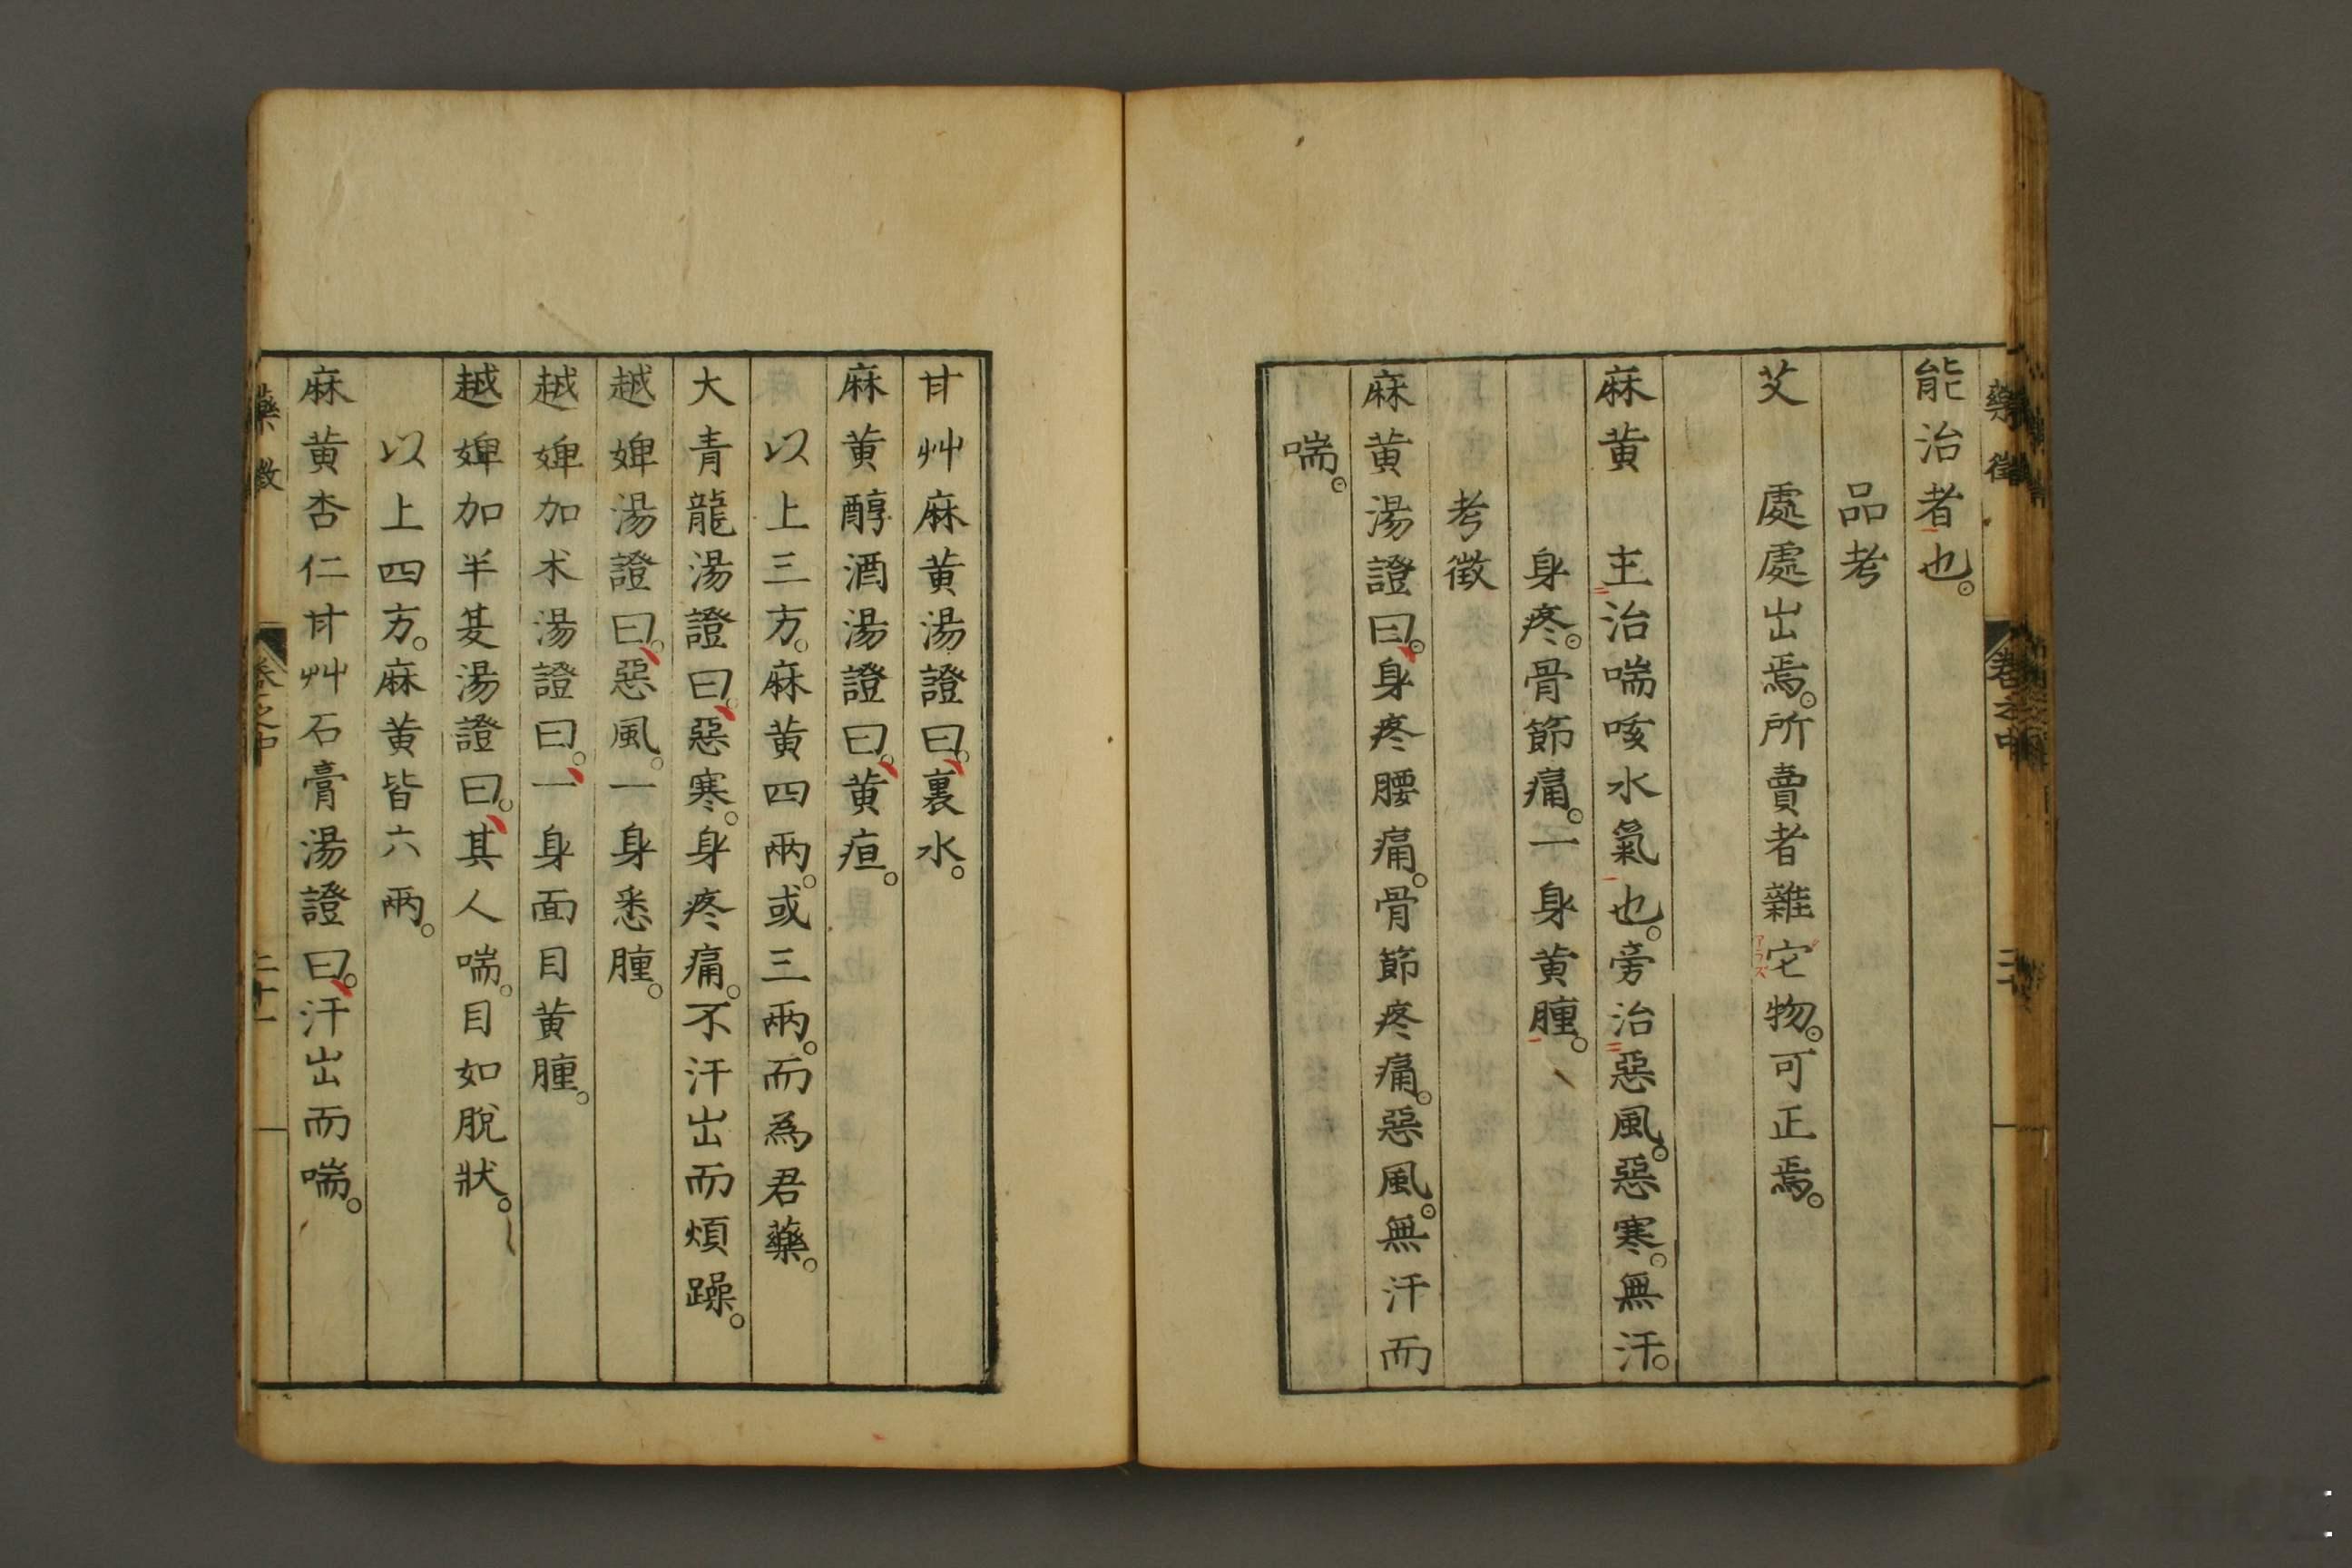 藥徵
卷之中
能治者也。
品考
艾 處處出焉。所賣者雜它物。可正焉。
麻黄 主治喘咳水氣也。旁治惡風。惡寒。無汗。
身疼。骨節痛。一身黄腫。
考徵
麻黄湯證曰。身疼腰痛。骨節疼痛。惡風。無汗而
喘。
甘艸麻黄湯證曰。裏水。
麻黄醇酒湯證曰。黄疸。
以上三方。麻黄四兩。或三兩。而為君藥。
大青龍湯證曰。惡寒。身疼痛。不汗出而煩躁。
越婢湯證曰。惡風。一身悉腫。
越婢加朮湯證曰。一身面目黄腫。
越婢加半夏湯證曰。其人喘。目如脫狀。
以上四方。麻黄皆六兩。
麻黄杏仁甘艸石膏湯證曰。汗出而喘。
藥徵
卷之中
二十一